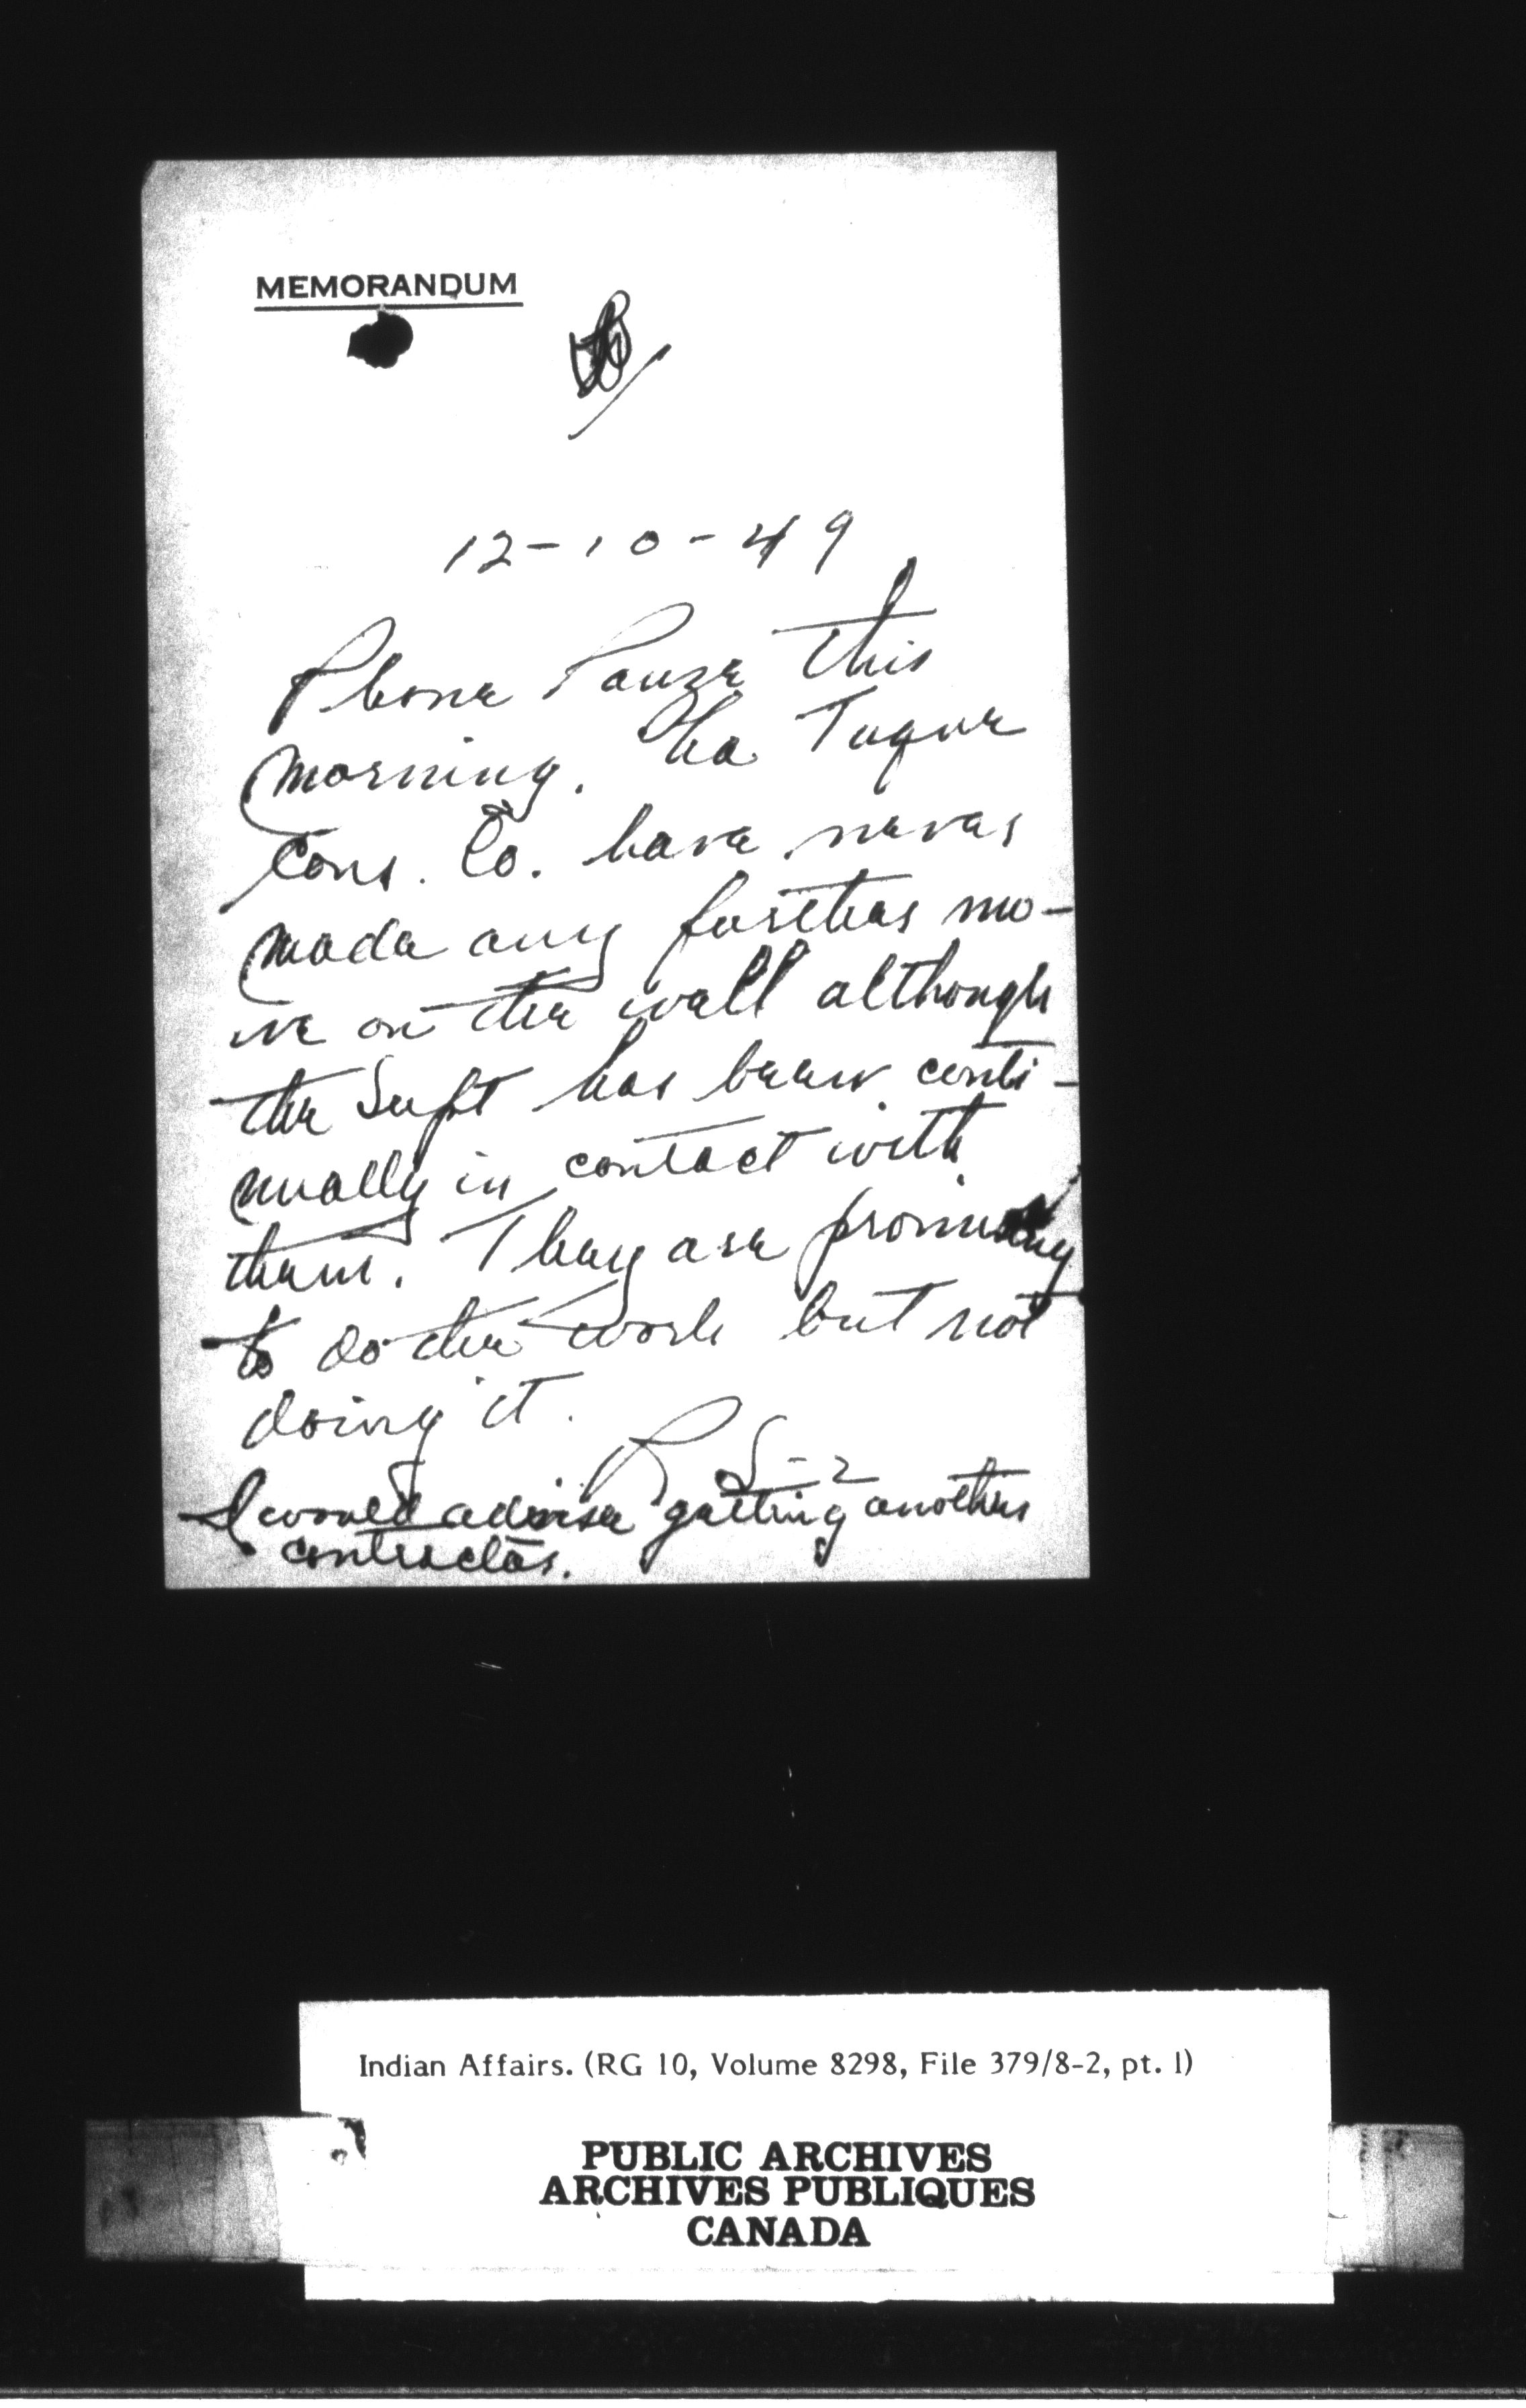 MEMORANDUM
12-10-49
Phone Pauze this
morning. The
Cons. Co. have never
made any further mo-
ve on the well although
the Supt has been conti-
nually in contact with
them. They are promising
to do the work but not
doing it.
I would advise getting another
contractor.
Indian Affairs. (RG 10, Volume 8298, File 379/8-2, pt. 1)
PUBLIC ARCHIVES
ARCHIVES PUBLIQUES
CANADA